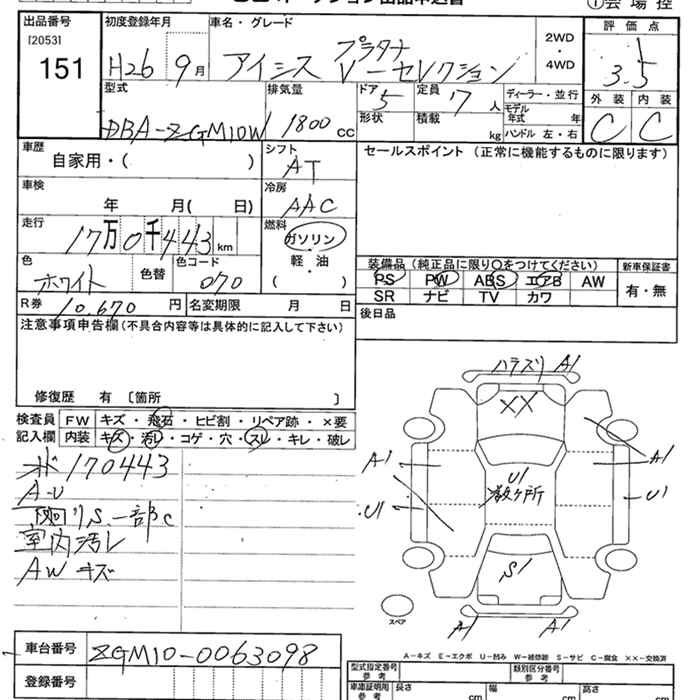 ①会場控
出品番号 初度登録年月 車名・グレード 2WD・4WD 評価点
[2053]
151
H26 9月 アイシス プラタナ V-セレクション 3.5
型式 排気量 ドア 5 定員 7人 ディーラー・並行 外装 内装
DBA-ZGM10W 1800cc 形状 積載 kg モデル年式 年 C C
ハンドル 左・右
車歴 シフト セールスポイント(正常に機能するものに限ります)
自家用・( ) AT
車検 冷房
年 月( 日) AAC
走行 燃料
17万0千443km ガソリン
軽・油
( )
色 色替 色コード
ホワイト 070
装備品(純正品に限り〇をつけてください) 新車保証書
PS PW ABS エアB AW 有・無
SR ナビ TV カワ
R券 10,670円 名変期限 月 日
後日品
注意事項申告欄(不具合内容等は具体的に記入して下さい)
修復歴 有 〔箇所 〕
検査員 FW キズ・飛石・ヒビ割・リペア跡・×要
記入欄 内装 キズ・汚レ・コゲ・穴・スレ・キレ・破レ
170443
A-U
下回りS.一部C
室内汚レ
AWキズ
ハラズリ A1
XX
A1 A1
U1
数ヶ所
U1 U1
S1
スペア
A1 A1
A-キズ E-エクボ U-凹み W-補修跡 S-サビ C-腐食 ××-交換済
車台番号 ZGM10-0063098
登録番号
型式指定番号 参考 類別区分番号 参考
車庫証明用 参考 長さ cm 幅 cm 高さ cm